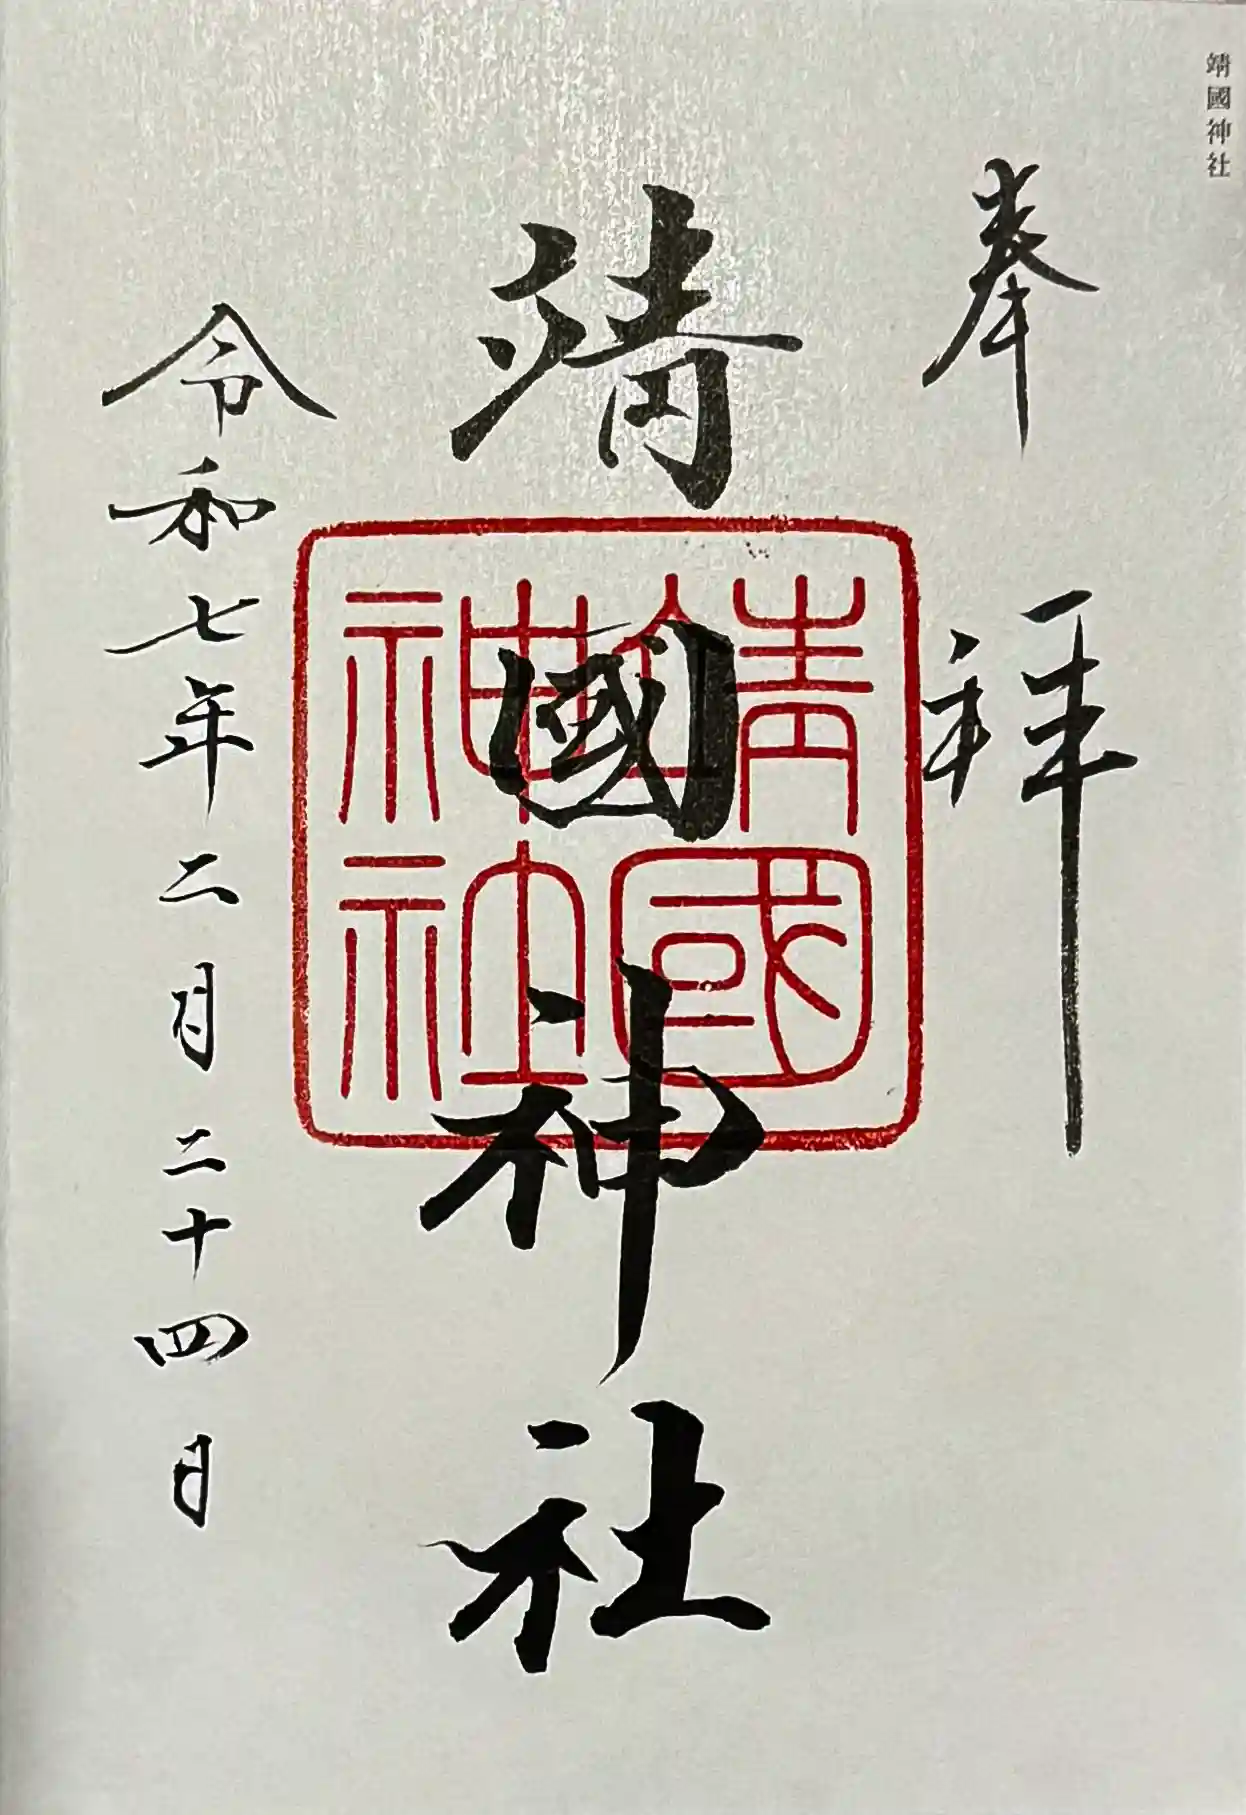 靖國神社
奉拝
靖國神社
靖國
神社
令和七年二月二十四日